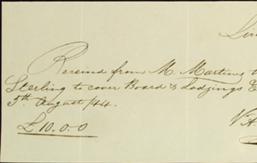 Received from M. Martin
Sterling to cover Board & Lodgings
5th August /44.
£10.0.0